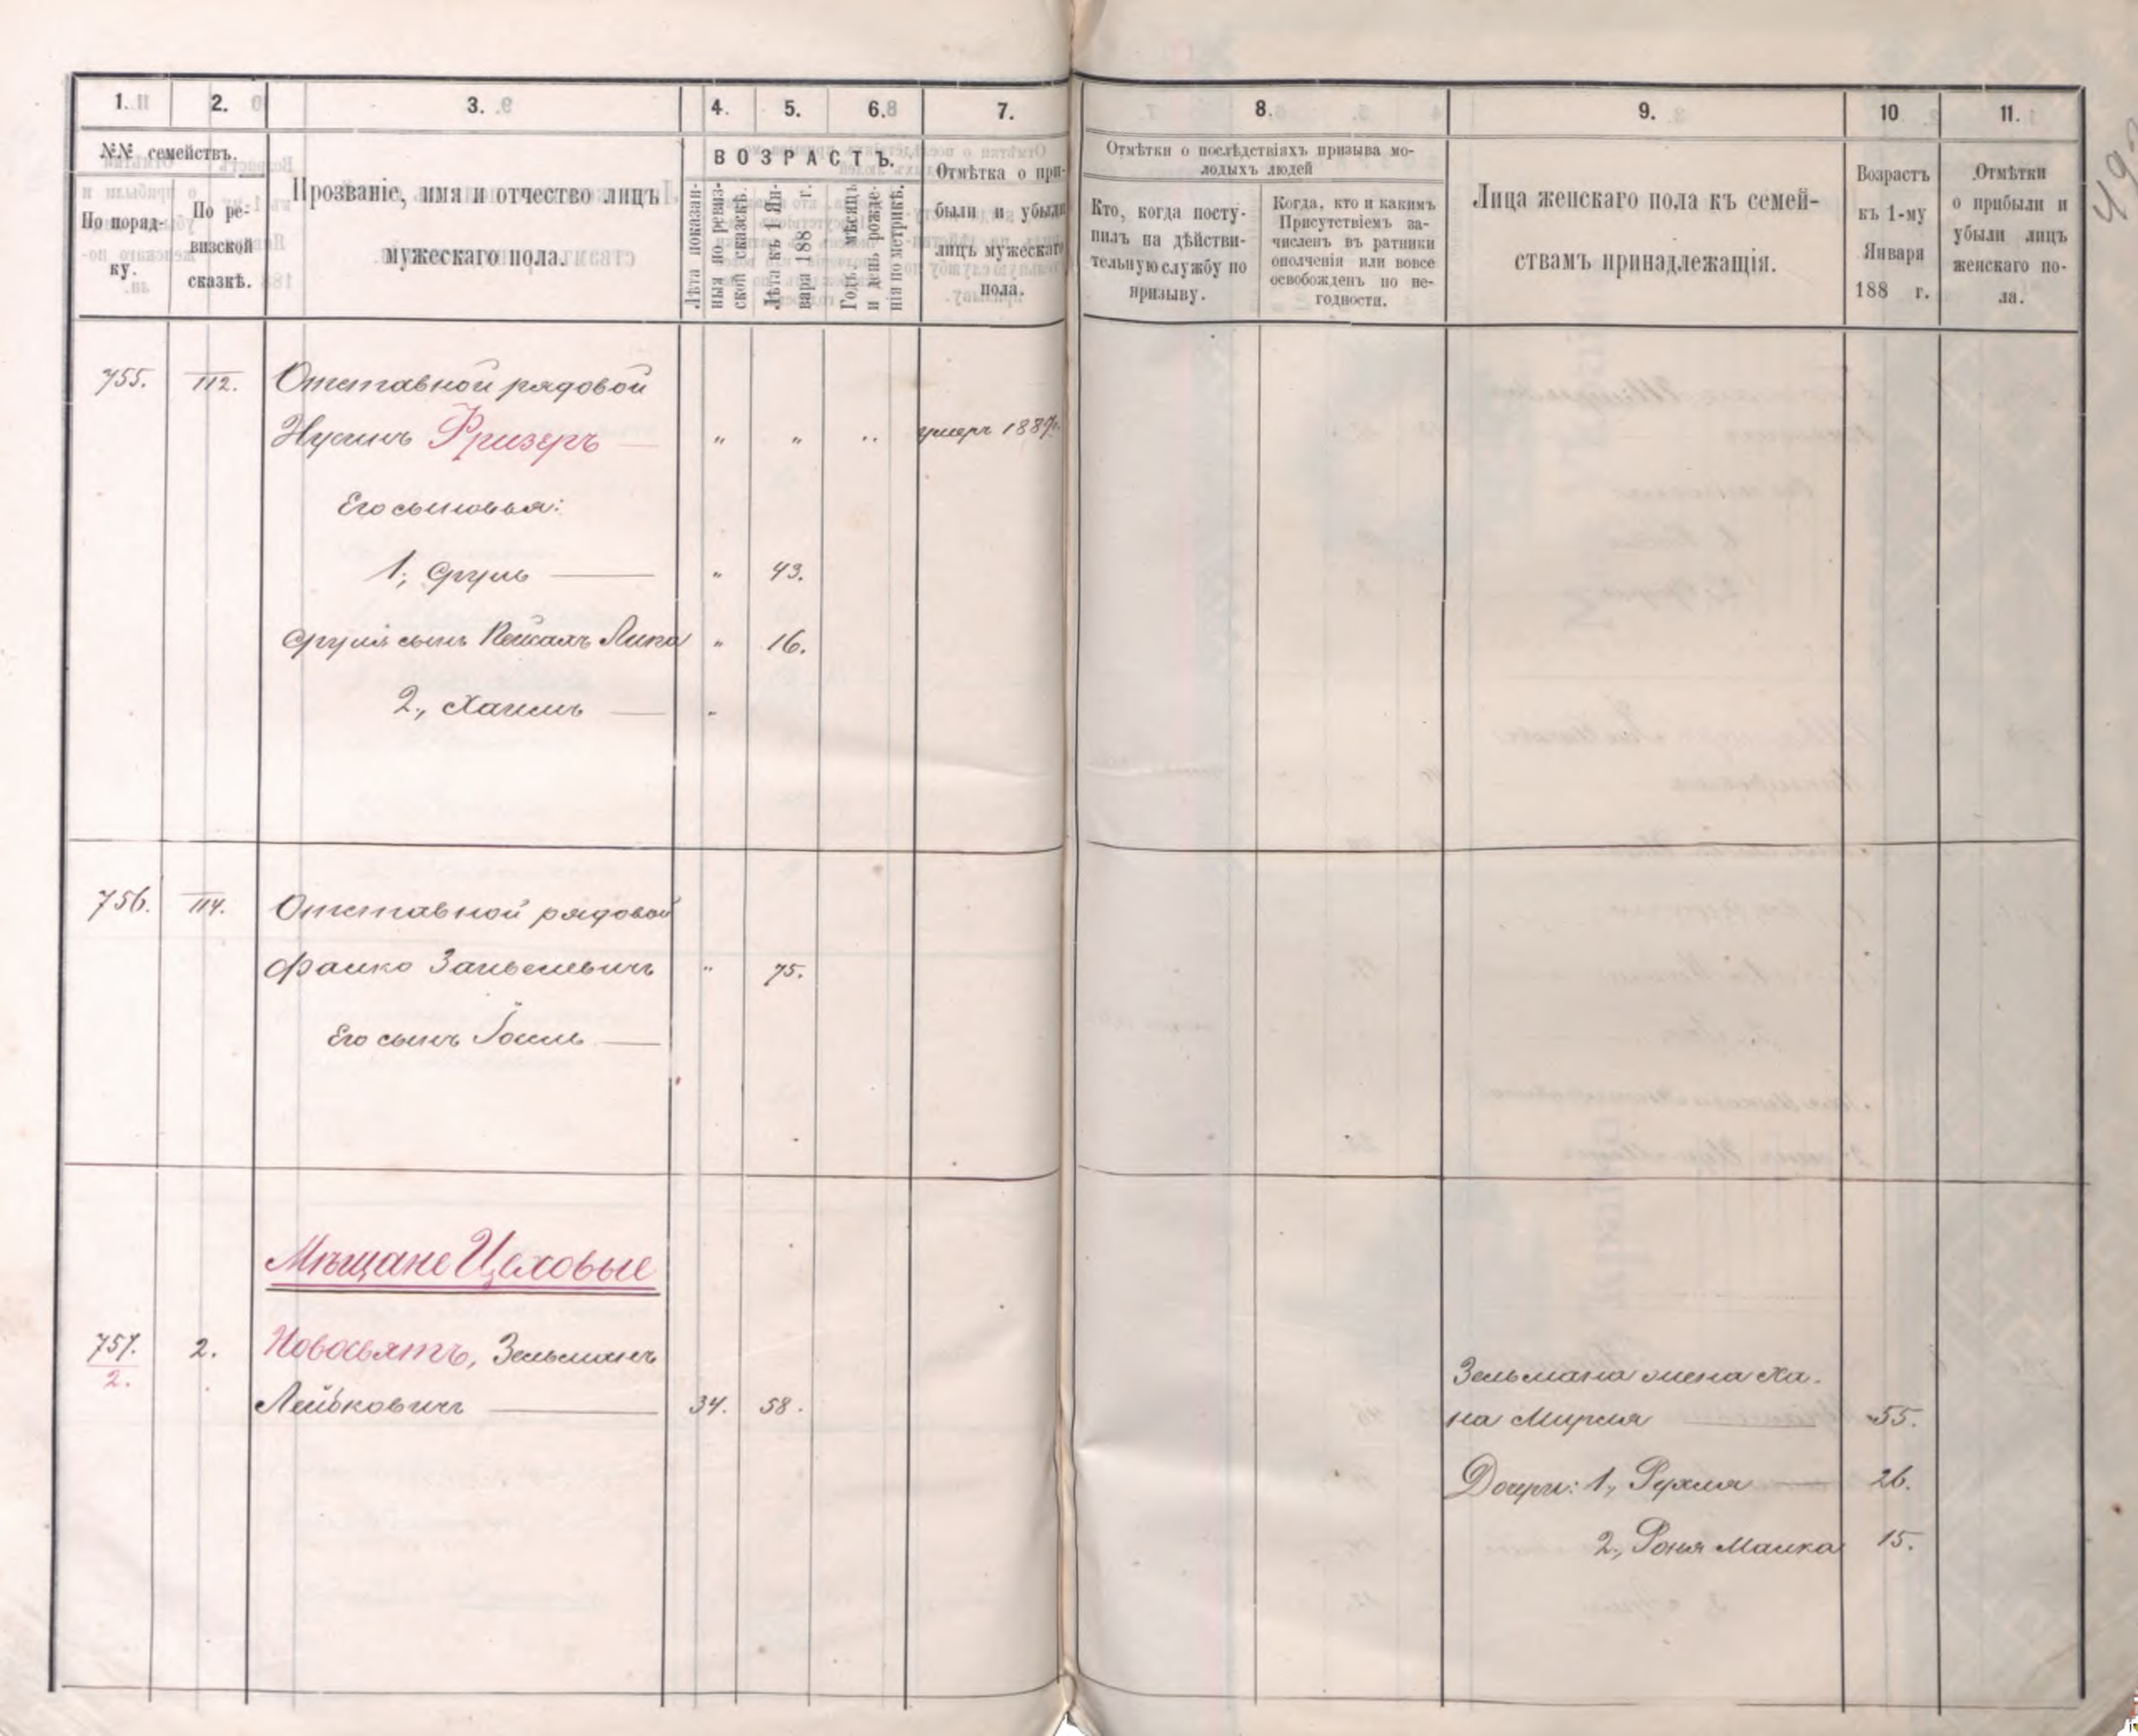 1. 2. 3. 4. 5. 6. 7. 8. 9. 10 11.
№№ семействъ.
По поряд-
ку.
По ре-
визской
сказкѣ.
Прозваніе, имя и отчество лицъ
мужескаго пола.
ВОЗРАСТЪ.
Лѣта показан-
ныя по ревиз-
ской сказкѣ.
Лѣта къ 1 Ян-
варя 188 г.
Годъ, мѣсяцъ
и день рожде-
нія по метрикѣ.
Отмѣтка о при-
были и убыли
лицъ мужескаго
пола.
Отмѣтки о послѣдствіяхъ призыва мо-
лодыхъ людей
Кто, когда посту-
пилъ на дѣйстви-
тельную службу по
призыву.
Когда, кто и какимъ
Присутствіемъ за-
численъ въ ратники
ополченія или вовсе
освобожденъ по не-
годности.
Лица женскаго пола къ семей-
ствамъ принадлежащія.
Возрастъ
къ 1-му
Января
188 г.
Отмѣтки
о прибыли и
убыли лицъ
женскаго по-
ла.
755. 112. Отставной рядовой
Нусинъ Фризеръ — " " " умеръ 1887г.
Его сыновья:
1, Сруль — " 43.
Сруля сынъ Пейсахъ Липа " 16.
2, Хаимъ — "
756. 114. Отставной рядовой
Фалко Занвелевичъ " 75.
Его сынъ Іоиль —
Мѣщане Цеховые
757. 2. Новосьятъ, Зельманъ
2.
Лейбковичъ — 34. 58.
Зельмана жена Ха-
на Мирля — 55.
Дочери: 1, Рухля — 26.
2, Роня Малка 15.